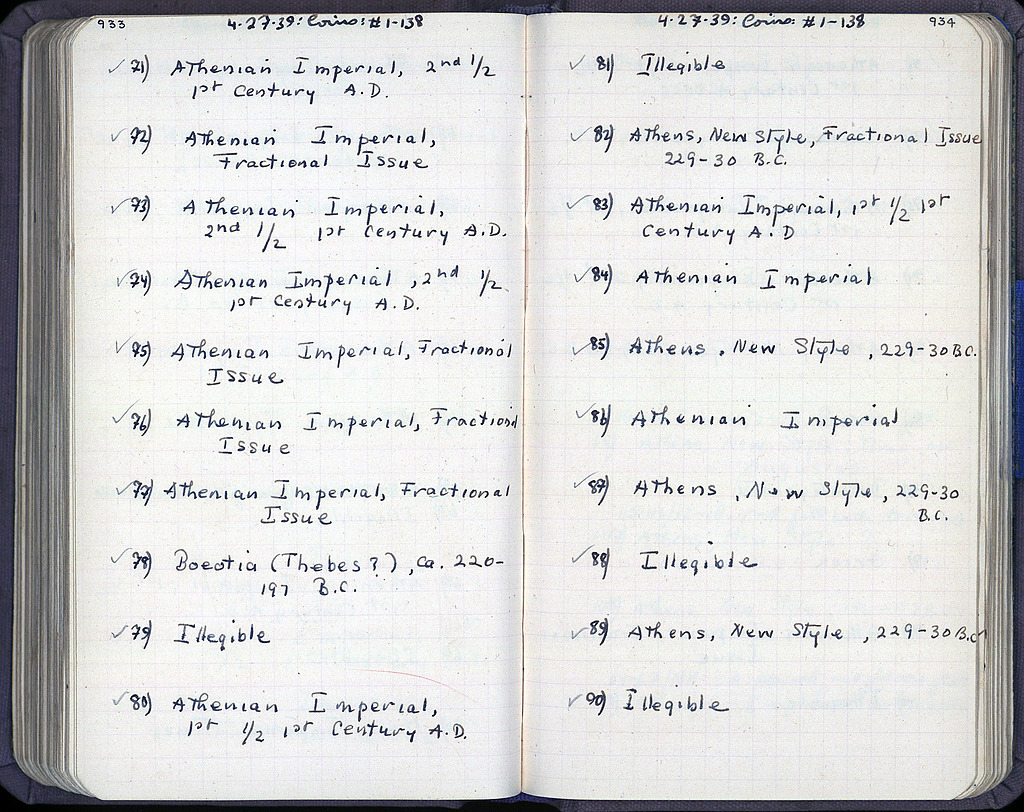 933
4-27-39: Coins: #1-138
✓71) Athenian Imperial, 2nd 1/2
1st Century A.D.
✓72) Athenian Imperial,
Fractional Issue
✓73) Athenian Imperial,
2nd 1/2 1st Century A.D.
✓74) Athenian Imperial, 2nd 1/2
1st Century A.D.
✓75) Athenian Imperial, Fractional
Issue
✓76) Athenian Imperial, Fractional
Issue
✓77) Athenian Imperial, Fractional
Issue
✓78) Boeotia (Thebes?), ca. 220-
197 B.C.
✓79) Illegible
✓80) Athenian Imperial,
1st 1/2 1st Century A.D.
4-27-39: Coins: #1-138
934
✓81) Illegible
✓82) Athens, New Style, Fractional Issue
229-30 B.C.
✓83) Athenian Imperial, 1st 1/2 1st
Century A.D
✓84) Athenian Imperial
✓85) Athens, New Style, 229-30 B.C.
✓86) Athenian Imperial
✓87) Athens, New Style, 229-30
B.C.
✓88) Illegible
✓89) Athens, New Style, 229-30 B.C
✓90) Illegible